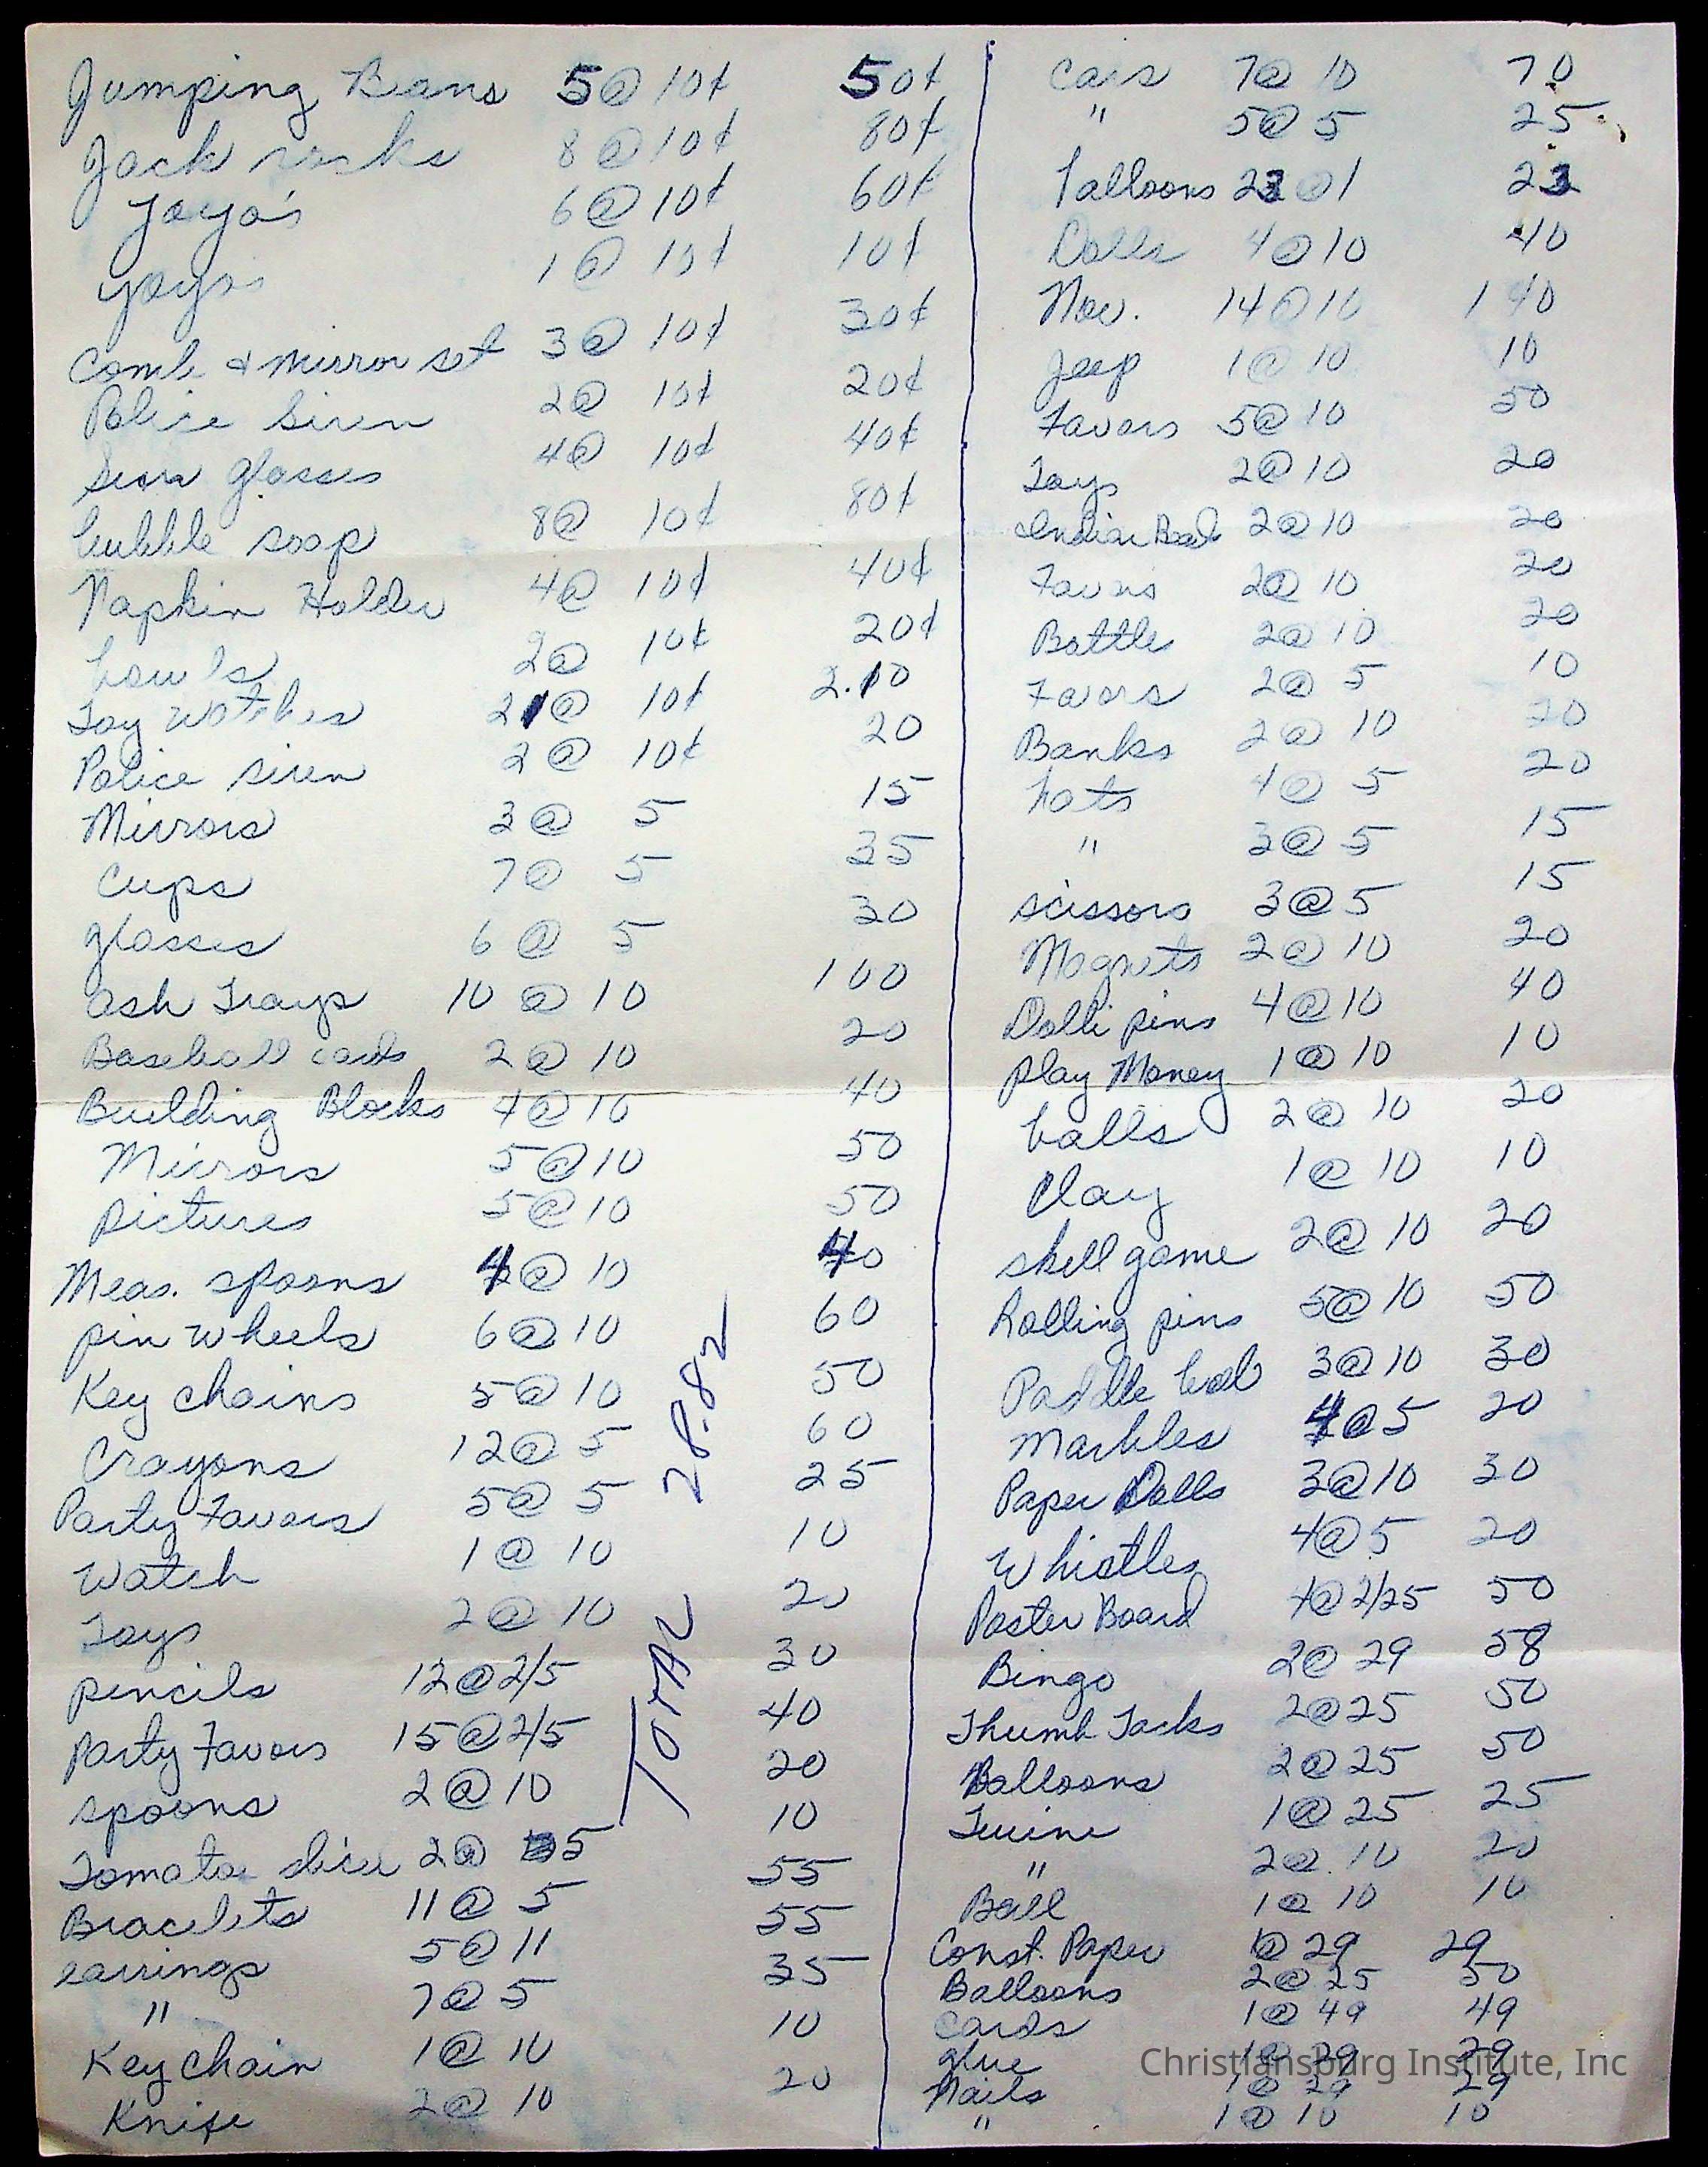 Jumping Beans 5@ 10¢ 50¢
Jack rocks 8@10¢ 80¢
yoyo's 6@10¢ 60¢
yoyos 1@ 10¢ 10¢
Comb & Mirror set 3@ 10¢ 30¢
Police Siren 2@ 10¢ 20¢
Sun glasses 4@ 10¢ 40¢
bubble soap 8@ 10¢ 80¢
Napkin Holder 4@ 10¢ 40¢
bowls 2@ 10¢ 20¢
Toy watches 21@ 10¢ 2.10
Police siren 2@ 10¢ 20
Mirrors 3@ 5 15
Cups 7@ 5 35
glasses 6@ 5 30
Ash Trays 10 @ 10 100
Baseball cards 2@ 10 20
Building Blocks 4@10 40
Mirrors 5@10 50
pictures 5@10 50
Meas. spoons 4@ 10 40
pin wheels 6@10 60
Key chains 5@10 50
Crayons 12@ 5 60
Party Favors 5@ 5 25
Watch 1@ 10 10
Toys 2@ 10 20
pencils 12@2/5 30
Party Favors 15@2/5 40
spoons 2@10 20
Tomatoe slicer 2@ 5 10
Bracelets 11@ 5 55
earrings 5@11 55
" 7@5 35
Key chain 1@ 10 10
Knife 2@ 10 20
TOTAL 28.82
Cars 7@ 10 70
" 5@ 5 25
balloons 23@1 23
Dolls 4@10 40
Nov. 14@10 140
Jeep 1@ 10 10
Favors 5@ 10 50
Toys 2@10 20
Indian 2@10 20
Favors 2@ 10 20
Bottle 2@ 10 20
Favors 2@ 5 10
Banks 2@ 10 20
hats 4@ 5 20
" 3@ 5 15
scissors 3@5 15
Magnets 2@ 10 20
Dolli pins 4@10 40
play Money 1@ 10 10
balls 2@ 10 20
Clay 1@ 10 10
shell game 2@ 10 20
Rolling pins 5@10 50
Paddle ball 3@10 30
Marbles 4@5 20
Paper Dolls 3@10 30
Whistles 4@5 20
Poster Board 4@2/25 50
Bingo 2@ 29 58
Thumb Tacks 2@25 50
Balloons 2@25 50
Twine 1@25 25
" 2@ 10 20
Ball 1@ 10 10
Const. Paper 1@ 29 29
Balloons 2@ 25 50
Cards 1@ 49 49
glue 1@ 29 29
Nails 1@ 29 29
" 1@ 10 10
Christiansburg Institute, Inc